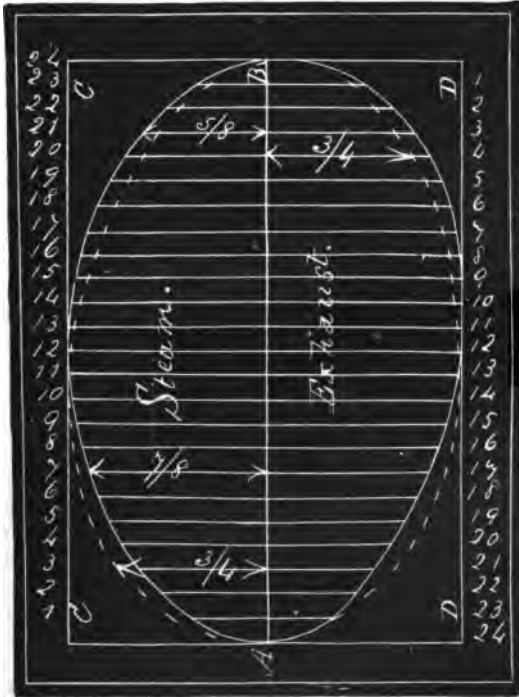 24
23
22
21
20
19
18
17
16
15
14
13
12
11
10
9
8
7
6
5
4
3
2
1
C
B
D
5/8
3/4
Steam.
Exhaust.
7/8
3/4
C
A
D
1
2
3
4
5
6
7
8
9
10
11
12
13
14
15
16
17
18
19
20
21
22
23
24